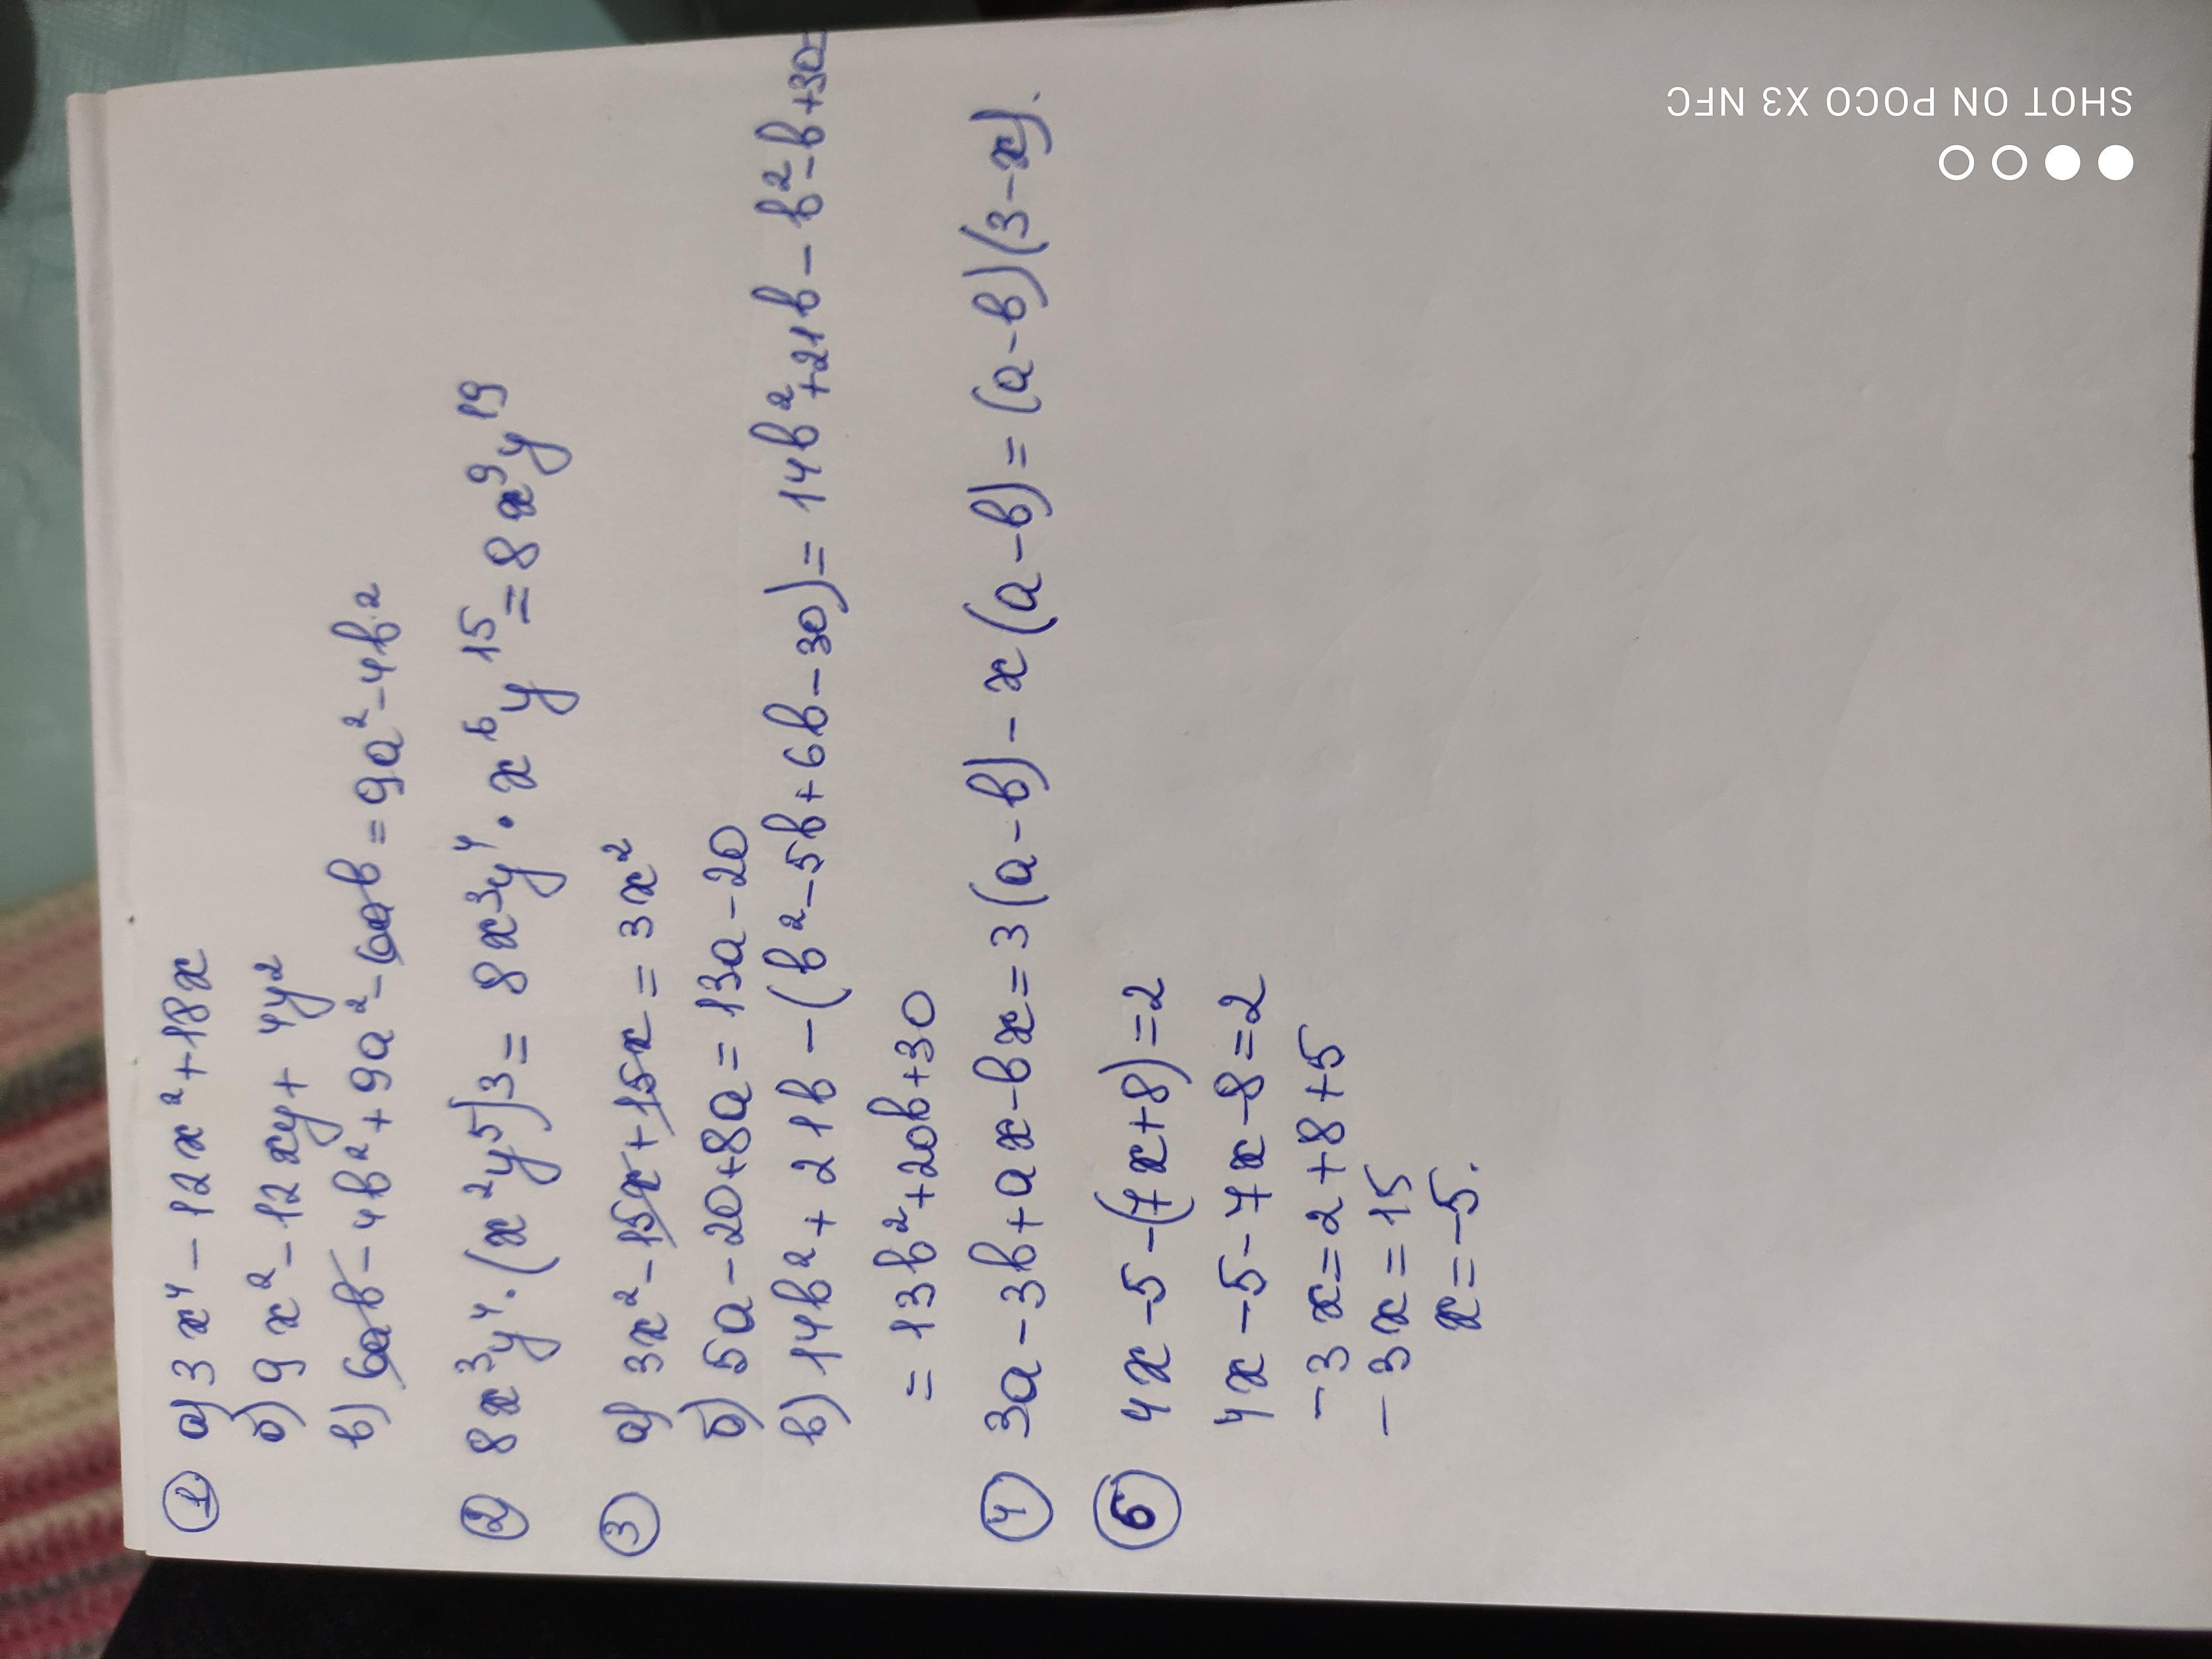 ① а) 3x⁴ - 12x² + 18x
б) 9x² - 12xy + 4y²
в) 6ab - 4b² + 9a² - 6ab = 9a² - 4b²
② 8x³y⁴ · (x²y⁵)³ = 8x³y⁴ · x⁶y¹⁵ = 8x⁹y¹⁹
③ а) 3x² - 15x + 15x = 3x²
б) 5a - 20 + 8a = 13a - 20
в) 14b² + 21b - (b² - 5b + 6b - 30) = 14b² + 21b - b² - b + 30 =
= 13b² + 20b + 30
④ 3a - 3b + ax - bx = 3(a - b) - x(a - b) = (a - b)(3 - x).
⑤ 4x - 5 - (7x + 8) = 2
4x - 5 - 7x - 8 = 2
-3x = 2 + 8 + 5
-3x = 15
x = -5.
SHOT ON POCO X3 NFC